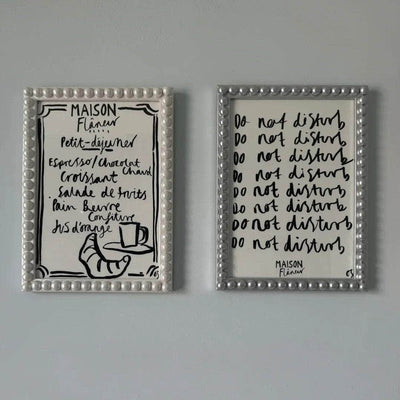 MAISON
Flâneur
Petit-déjeuner
Espresso/Chocolat
Chaud
Croissant
Salade de fruits
Pain Beurre
Confiture
Jus d'orange
Do not disturb
Do not disturb
Do not disturb
Do not disturb
Do not disturb
Do not disturb
Do not disturb
Do not disturb
MAISON
Flâneur